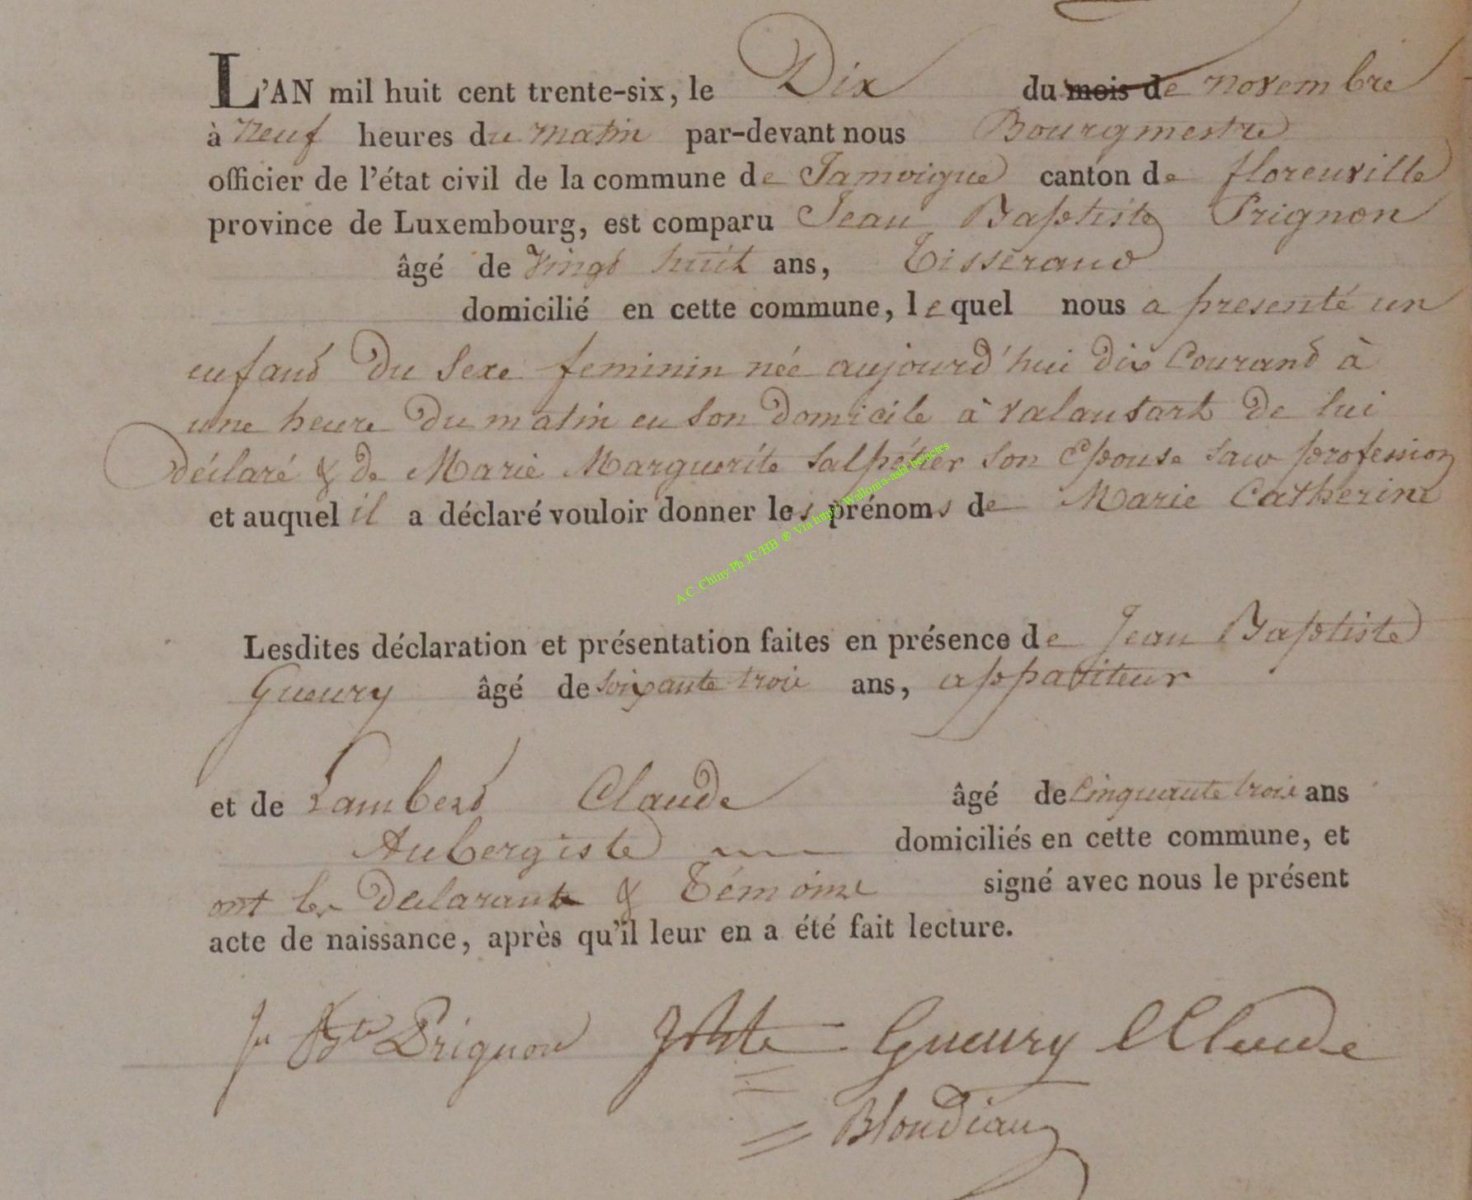 L'AN mil huit cent trente-six, le Dix du mois de novembre
à neuf heures du matin par-devant nous Bourgmestre
officier de l'état civil de la commune de Jamoigne canton de florenville
province de Luxembourg, est comparu Jean Baptiste Prignon
âgé de vingt huit ans, Tisserand
domicilié en cette commune, lequel nous a presenté un
enfand du sexe feminin née aujourd'hui dix Courand à
une heure du matin en son domicile à valansart de lui
déclaré & de Marie Marguerite Salpéter son Epouse sans profession
et auquel il a déclaré vouloir donner les prénoms de Marie Catherine
Lesdites déclaration et présentation faites en présence de Jean Baptiste
Gueury âgé de soixante trois ans, appariteur
et de Lambert Claude âgé de Cinquante trois ans
Aubergiste domiciliés en cette commune, et
ont les declarant & Témoins signé avec nous le présent
acte de naissance, après qu'il leur en a été fait lecture.
Jn Bte Prignon JBte Gueury LClaude
Blondiau
A.C. Chiny Ph JC/HB ® Via http://Wallonia-asbl